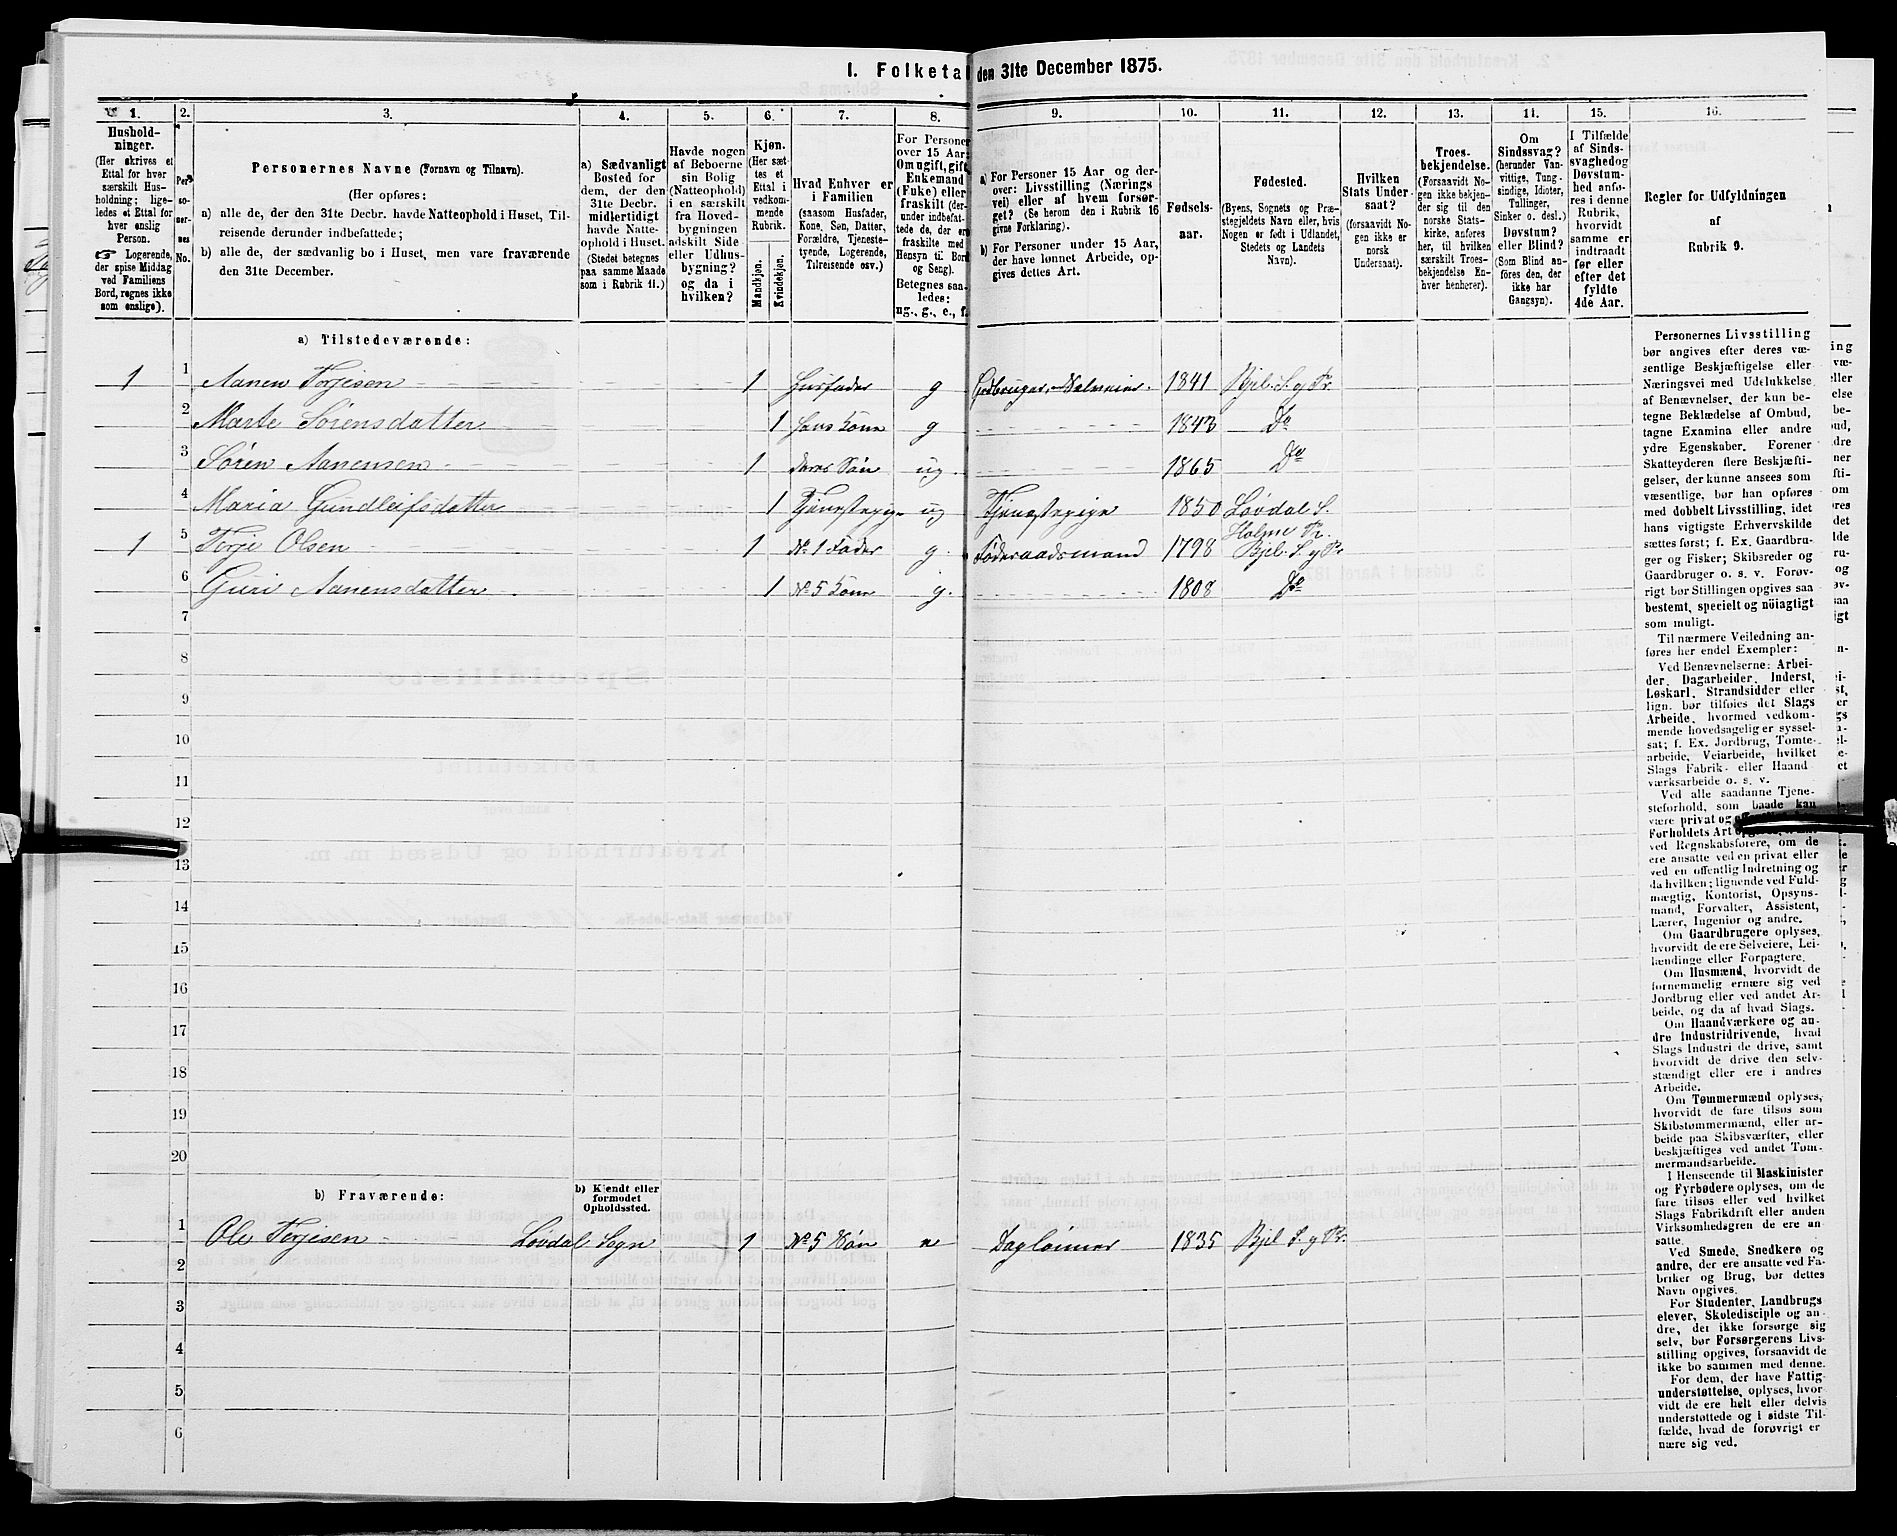 I. Folketal den 31te December 1875.
1. 2. 3. 4. 5. 6. 7. 8. 9. 10. 11. 12. 13. 14. 15. 16.
Hushold-
ninger.
(Her skrives et
Ettal for hver
særskilt Hus-
holdning; lige-
ledes et Ettal for
hver enslig
Person.
☞ Logerende,
der spise Middag
ved Familiens
Bord, regnes ikke
som enslige).
Per
so-
ner-
nes
No.
Personernes Navne (Fornavn og Tilnavn).
(Her opføres:
a) alle de, der den 31te Decbr. havde Natteophold i Huset, Til-
reisende derunder indbefattede;
b) alle de, der sædvanlig bo i Huset, men vare fraværende
den 31te December.
a) Sædvanligt
Bosted for
dem, der den
31te Decbr.
midlertidigt
havde Natte-
ophold i Huset.
(Stedet betegnes
paa samme Maade
som i Rubrik 11.)
Havde nogen
af Beboerne
sin Bolig
(Natteophold)
i en særskilt
fra Hoved-
bygningen
adskilt Side
eller Udhus-
bygning?
og da i
hvilken?
Kjøn.
(Her sæt-
tes et
Ettal i
vedkom-
mende
Rubrik.
Mandkjøn.
Kvindekjøn.
Hvad Enhver er
i Familien
(saasom Husfader,
Kone, Søn, Datter,
Forældre, Tjeneste-
tyende, Logerende,
Tilreisende osv.)
For Personer
over 15 Aar:
Om ugift, gift,
Enkemand
(Fuke) eller
fraskilt (der-
under indbefat-
tede de, der ere
fraskilte med
Hensyn til Bord
og Seng).
Betegnes saa-
ledes:
ug., g., e., f.
a) For Personer 15 Aar og der-
over: Livsstilling (Nærings
vei) eller af hvem forsør-
get? (Se herom den i Rubrik 16
givne Forklaring).
b) For Personer under 15 Aar,
der have lønnet Arbeide, op-
gives dettes Art.
Fødsels-
aar.
Fødested.
(Byens, Sognets og Præ-
stegjeldets Navn eller, hvis
Nogen er født i Udlandet,
Stedets og Landets
Navn).
Hvilken
Stats Under-
saat?
(forsaavidt No-
gen ikke er
norsk
Undersaat).
Troes-
bekjendelse.
(Forsaavidt No-
gen ikke bekjen-
der sig til den
norske Stats-
kirke, anføres
her, til hvilken
særskilt Troes-
bekjendelse En-
hver henhører).
Om
Sindssvag?
(herunder Van-
vittige, Tung-
sindige, Idioter,
Tullinger,
Sinker o. desl.)
Døvstum?
eller Blind?
(Som Blind an-
føres den, der
ikke har
Gangsyn).
I Tilfælde
af Sinds-
svaghedog
Døvstum-
hed anfø-
res i denne
Rubrik,
hvorvidt
samme er
indtraadt
før eller
efter det
fyldte
4de Aar.
Regler for Udfyldningen
af
Rubrik 9.
a) Tilstedeværende:
1 1 Aanen Torjesen 1 Husfader g Selveier 1841 Bjel. S. og Pr.
2 Marte Sørensdatter 1 Hans Kone g 1843 Do
3 Søren Aanensen 1 deres Søn ug. 1865 Do
4 Maria Gundleifsdatter 1 Tjenestepige ug Tjenestepige 1850 Løvdal S.
Holme Pr.
1 5 Torje Olsen 1 No 1 Fader g. Føderaadsmand 1798 Bjel. S. og Pr
6 Guri Aanensdatter 1 No 5 Kone g. 1808 Do
7
8
9
10
11
12
13
14
15
16
17
18
19
20
b) Fraværende:
b) Kjendt eller
formodet
Opholdssted.
1 Ole Torjesen Løvdal Sogn 1 No 5 Søn Dagleiner 1835 Bjel S. og Pr.
2
3
4
5
6
Personernes Livsstilling
bør angives efter deres væ-
sentlige Beskjæftigelse eller
Næringsvei med Udelukkelse
af Benævnelser, der kun be-
tegne Beklædelse af Ombud,
tagne Examina eller andre
ydre Egenskaber. Forener
Skatteyderen flere Beskjæfti-
gelser, der kunne ansees som
væsentlige, bør han opføres
med dobbelt Livsstilling, idet
hans vigtigste Erhvervskilde
sættes først; f. Ex. Gaardbru-
ger og Fisker; Skibsreder og
Gaardbruger o. s. v. Forøv-
rigt bør Stillingen opgives saa
bestemt, specielt og nöiagtigt
som muligt.
Til nærmere Veiledning an-
føres her endel Exempler:
Ved Benævnelserne: Arbei-
der, Dagarbeider, Inderst,
Løskarl, Strandsidder eller
lign. bør tilføies det Slags
Arbeide, hvormed vedkom-
mende hovedsagelig er syssel-
sat; f. Ex. Jordbrug, Tomte-
arbeide, Veiarbeide, hvilket
Slags Fabrik- eller Haand
værksarbeide o. s. v.
Ved alle saadanne Tjene-
steforhold, som baade kan
være privat og
Forholdets Art
ved Regnskabsførere, om de
ere ansatte ved en privat eller
ved en offentlig Indretning og
da hvilken; lignende ved Fuld-
mægtig, Kontorist, Opsyns-
mand, Forvalter, Assistent,
Lærer, Ingeniør og andre.
Om Gaardbrugere oplyses,
hvorvidt de ere Selveiere, Lei-
lændinge eller Forpagtere.
Om Husmænd, hvorvidt de
fornemmelig ernære sig ved
Jordbrug eller ved andet Ar-
beide, og da af hvad Slags.
Om Haandværkere og an-
dre Industridrivende, hvad
Slags Industri de drive, samt
hvorvidt de drive den selv-
stændigt eller ere i andres
Arbeide.
Om Tømmermænd oplyses,
hvorvidt de fare tilsøs som
Skibstømmermænd, eller ar-
beide paa Skibsværfter, eller
beskjæftiges ved andet Tøm-
mermandsarbeide.
I Henseende til Maskinister
og Fyrbødere oplyses, om de
fare tilsøs eller ved hvilket
Slags Fabrikdrift eller anden
Virksomhedsgren de ere an-
satte.
Ved Smede, Snedkere og
andre, der ere ansatte ved Fa-
briker og Brug, bør dettes
Navn opgives.
For Studenter, Landbrugs
elever, Skoledisciple og an-
dre, der ikke forsørge sig
selv, bør Forsørgerens Livs-
stilling opgives, forsaavidt de
ikke bo sammen med denne.
For dem, der have Fattig-
understøttelse, oplyses, hvor-
vidt de ere helt eller delvis
understøttede og i sidste Til-
fælde, hvad de forøvrigt er-
nære sig ved.